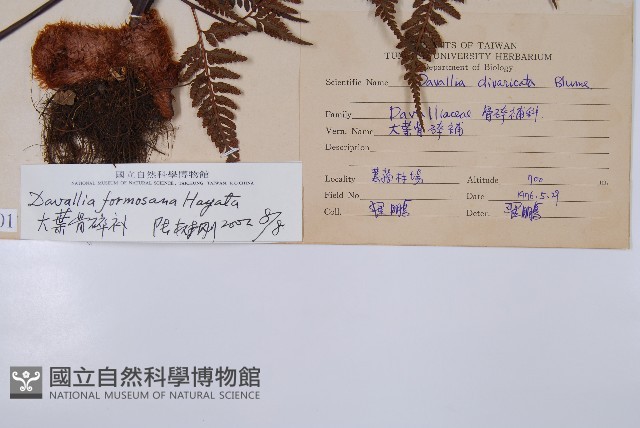 PLANTS OF TAIWAN
TUNGHAI UNIVERSITY HERBARIUM
Department of Biology
Scientific Name Davallia divaricata Blume
Family Davalliaceae 骨碎補科
Vern. Name 大葉骨碎補
Description
Locality
Altitude 700 m.
Field No
Date 1976.5.29
Coll.
Deter.
國立自然科學博物館
NATIONAL MUSEUM OF NATURAL SCIENCE, TAICHUNG, TAIWAN, R.O.CHINA
Davallia formosana Hayata
大葉骨碎补 2002 8/8
01
國立自然科學博物館
NATIONAL MUSEUM OF NATURAL SCIENCE